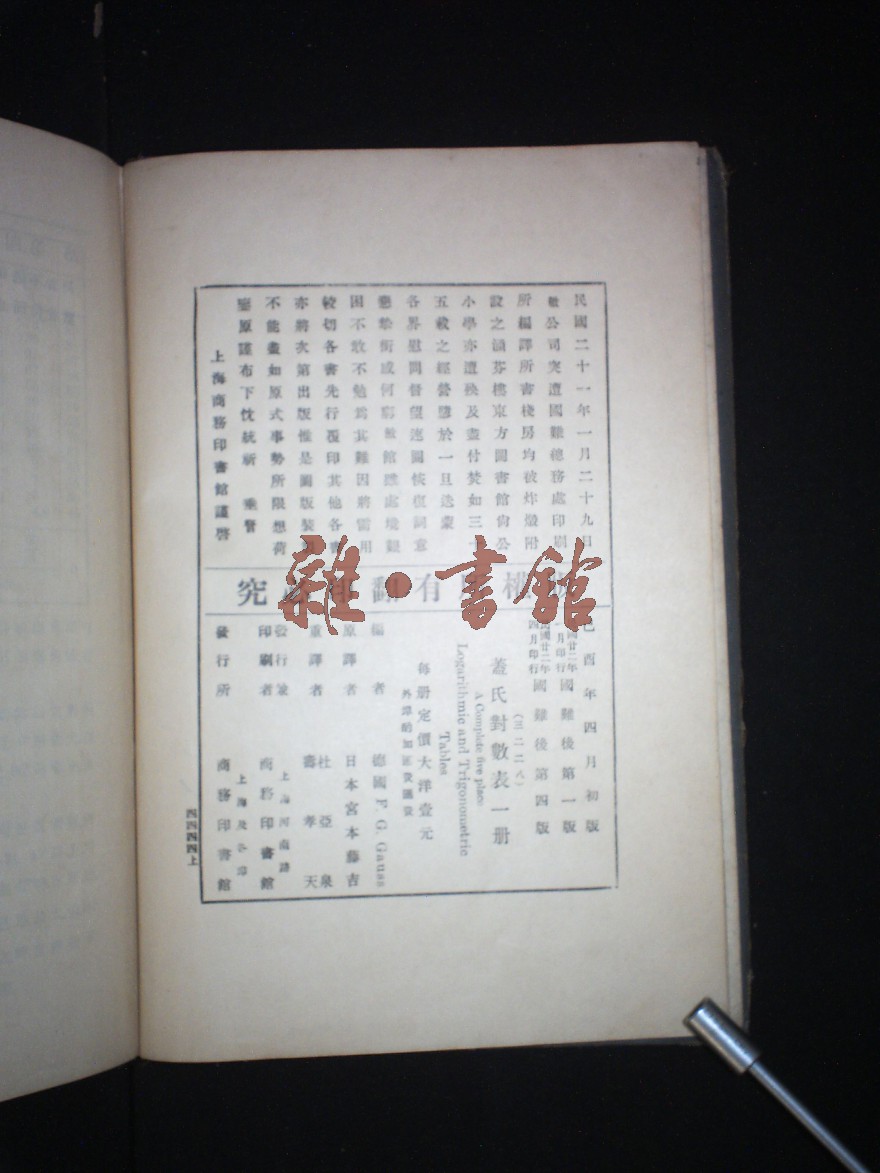 民國二十一年一月二十九日
敝公司突遭國難總務處印刷
所編譯所書棧房均被炸燬附
設之涵芬樓東方圖書館尙公
小學亦遭殃及盡付焚如三十
五載之經營隳於一旦迭蒙
各界慰問督望速圖恢復詞意
懇摯銜感何窮敝館雖處境艱
困不敢不勉爲其難因將需用
較切各書先行覆印其他各書
亦將次第出版惟是圖版裝製
不能盡如原式事勢所限想荷
鑒原謹布下忱統祈 垂詧
上海商務印書館謹啓
有翻 究
雜·書館
己酉年四月初版
民國廿二年一月印行 國難後第一版
民國廿二年四月印行 國難後第四版
(三二二八)
蓋氏對數表一册
A Complete five place
Logarithmic and Trigonometric
Tables
每册定價大洋壹元
外埠酌加運費匯費
編者 德國 F. G. Gauss
原譯者 日本宮本藤吉
重譯者 杜亞泉
壽孝天
發行兼印刷者 上海河南路 商務印書館
發行所 上海及各埠 商務印書館
四四四四上